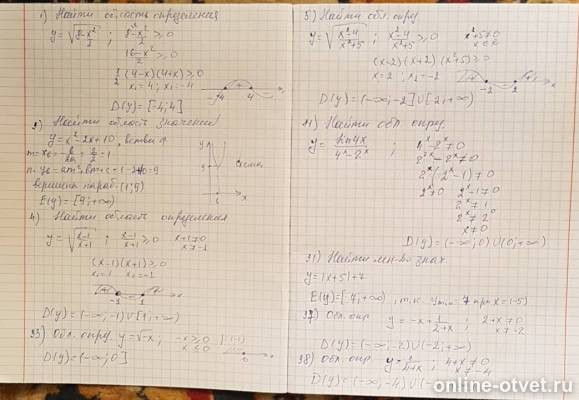 1) Найти область определения
y = √(8 - x²/2) ; 8 - x²/2 ≥ 0
(16 - x²)/2 ≥ 0
1/2 (4-x)(4+x) ≥ 0
x₁ = 4; x₂ = -4
-4 4 x
D(y) = [-4; 4]
2) Найти область значений
y = x² - 2x + 10, ветви ↑
m = x₀ = -b/2a = 2/2 = 1
вершина параб. (1; 9)
E(y) = [9; +∞)
4) Найти область определения
y = √((x-1)/(x+1)) ; (x-1)/(x+1) ≥ 0 x+1 ≠ 0
x ≠ -1
(x-1)(x+1) ≥ 0
x₁ = 1 x₂ = -1
D(y) = (-∞; -1) ∪ [1; +∞)
23) Обл. опред. y = √-x ; -x ≥ 0 |·(-1)
x ≤ 0
D(y) = (-∞; 0]
5) Найти обл. опред
y = √((x²-4)/(x²+5)) ; (x²-4)/(x²+5) ≥ 0 x²+5 ≠ 0
(x-2)(x+2)(x²+5) ≥ 0
x = 2 ; x₂ = -2
-2 2 x
D(y) = (-∞; -2] ∪ [2; +∞)
Найти обл. опред.
4ˣ - 2ˣ ≠ 0
2²ˣ - 2ˣ ≠ 0
2ˣ(2ˣ - 1) ≠ 0
2ˣ ≠ 0 2ˣ - 1 ≠ 0
2ˣ ≠ 1
2ˣ ≠ 2⁰
x ≠ 0
D(y) = (-∞; 0) ∪ (0; +∞)
31) Найти мн-во знач.
y = |x+5| + 7
E(y) = [7; +∞), т.к. y min = 7 при x = (-5)
37) Обл. опр y = -x + 1/(2+x) ; 2+x ≠ 0
x ≠ -2
D(y) = (-∞; -2) ∪ (-2; +∞)
38) обл. опр. y = 1/(4+x) ; 4+x ≠ 0
x ≠ -4
D(y) = (-∞; -4) ∪ (-
online-otvet.ru